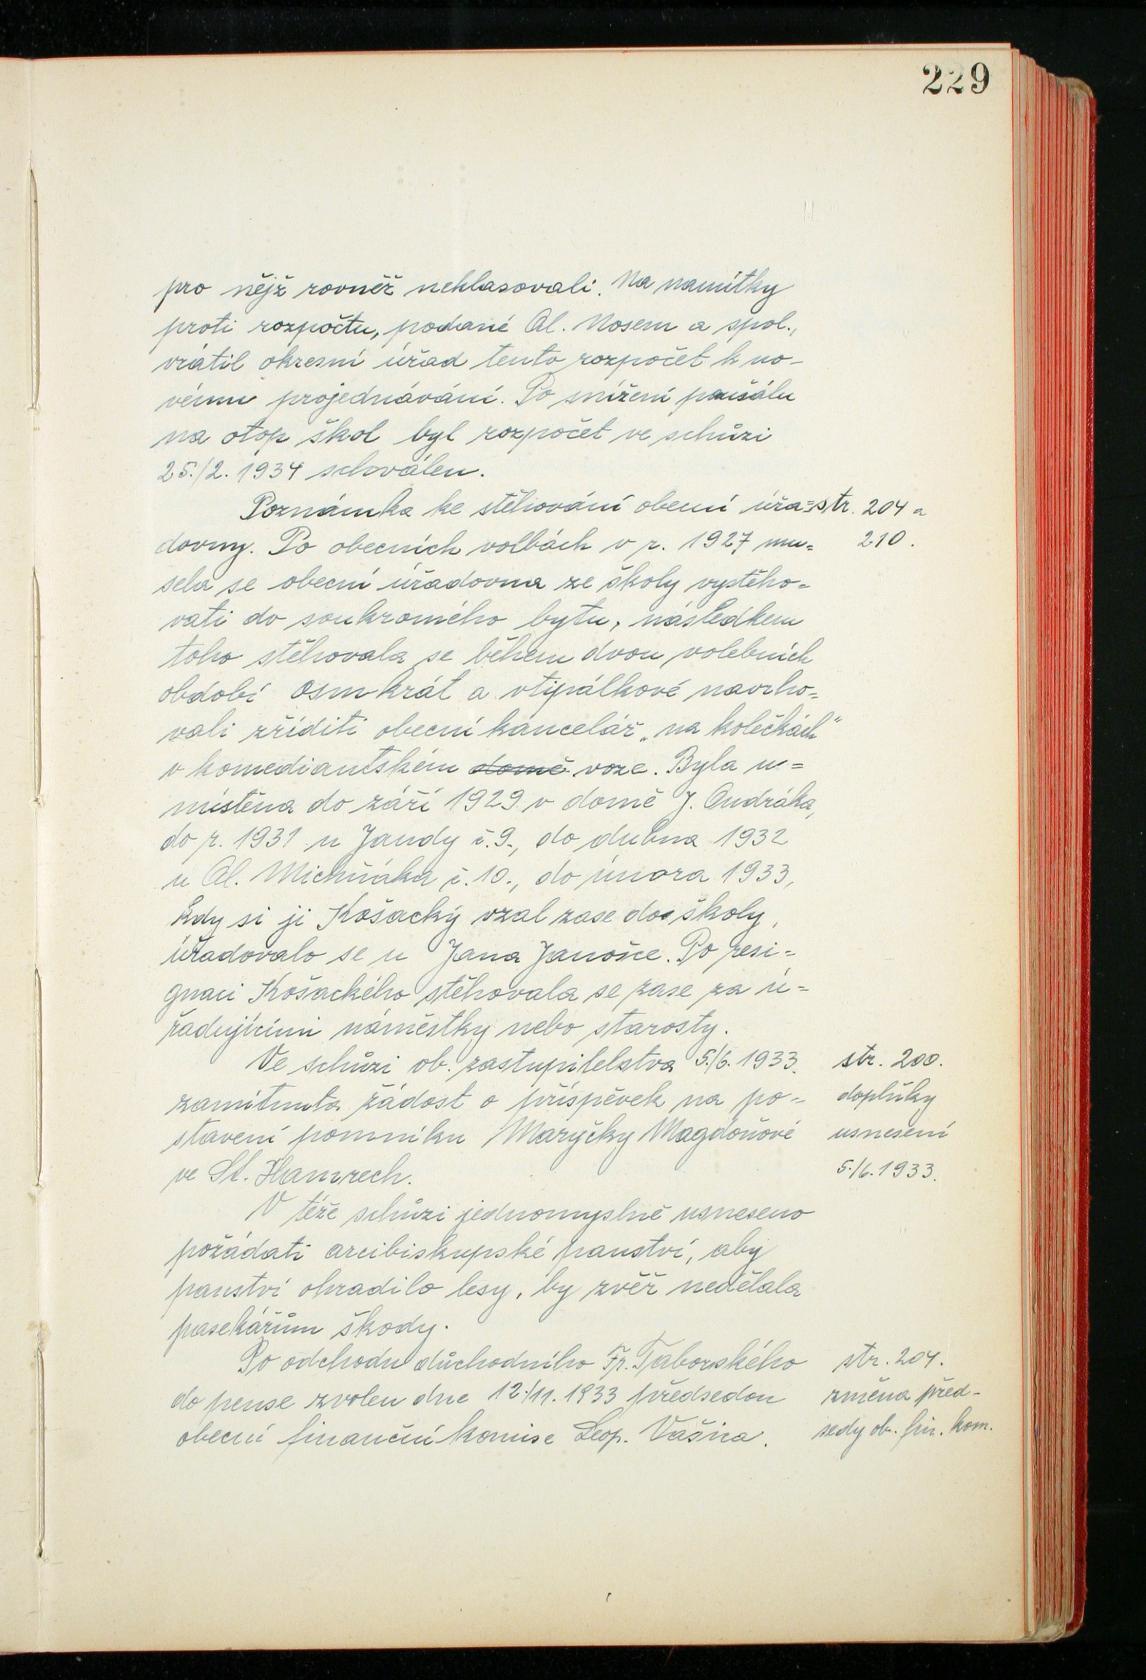 229
pro nějž rovněž nehlasovali. Na namítky
proti rozpočtu, podané Al. Nosem a spol.,
vrátil okresní úřad tento rozpočet k no-
vému projednávání. Po snížení paušálu
na otop škol byl rozpočet ve schůzi
25./2. 1934 schválen.
Poznámka ke stěhování obecní úřa= str. 204 a
dovny. Po obecních volbách v r. 1927 mu= 210.
sela se obecní úřadovna ze školy vystěho=
vati do soukromého bytu, následkem
toho stěhovala se během dvou volebních
období osmkrát a vtipálkové navrho=
vali zříditi obecní kancelář „na kolečkách"
v komediantském domě voze. Byla u=
místěna do září 1929 v domě J. Ondráka,
do r. 1931 u Jandy č.9., do dubna 1932
u Al. Michňáka č.10., do února 1933,
kdy si ji Košacký vzal zase do školy,
úřadovalo se u Jana Janošce. Po resi=
gnaci Košackého stěhovala se zase za ú=
řadujícími náměstky nebo starosty.
Ve schůzi ob. zastupitelstva 5./6. 1933. str. 200.
zamítnuta žádost o příspěvek na po= doplňky
stavení pomníku Maryčky Magdonové usnesení
ve St. Hamrech. 5./6. 1933.
V téže schůzi jednomyslně usneseno
požádati arcibiskupské panství, aby
panství ohradilo lesy, by zvěř nedělala
pasekářům škody.
Po odchodu důchodního Fr. Taborského str. 204.
do pense zvolen dne 12./11. 1933 předsedou změna před-
obecní finanční komise Leop. Vašica. sedy ob. fin. kom.